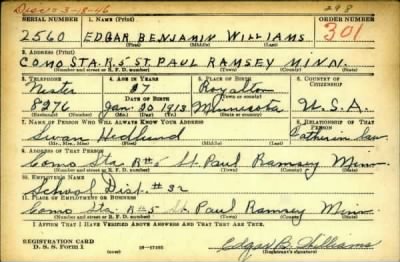 Disc - 3-18-46
298
SERIAL NUMBER 1. NAME (Print) ORDER NUMBER
2560 EDGAR BENJAMIN WILLIAMS 301
(First) (Middle) (Last)
2. ADDRESS (Print)
COMO STA. R.5 ST. PAUL RAMSEY MINN.
(Number and street or R. F. D. number) (Town) (County) (State)
3. TELEPHONE 4. AGE IN YEARS 5. PLACE OF BIRTH 6. COUNTRY OF CITIZENSHIP
Nester 27 Royalton
DATE OF BIRTH (Town or county)
8276 Jan. 20 1913 Minnesota U.S.A.
(Mo.) (Day) (Yr.) (State or country)
7. NAME OF PERSON WHO WILL ALWAYS KNOW YOUR ADDRESS 8. RELATIONSHIP OF THAT PERSON
Swan Hedlund Father in law
(Mr., Mrs., Miss) (First) (Middle) (Last)
9. ADDRESS OF THAT PERSON
Como Sta. R#5 St. Paul Ramsey Minn
(Number and street or R. F. D. number) (Town) (County) (State)
10. EMPLOYER'S NAME
School Dist. #32
11. PLACE OF EMPLOYMENT OR BUSINESS
Como Sta. R#5 St. Paul Ramsey Minn
(Number and street or R. F. D. number) (Town) (County) (State)
I AFFIRM THAT I HAVE VERIFIED ABOVE ANSWERS AND THAT THEY ARE TRUE.
REGISTRATION CARD
D. S. S. Form 1
Edgar B. Williams
(Registrant's signature)